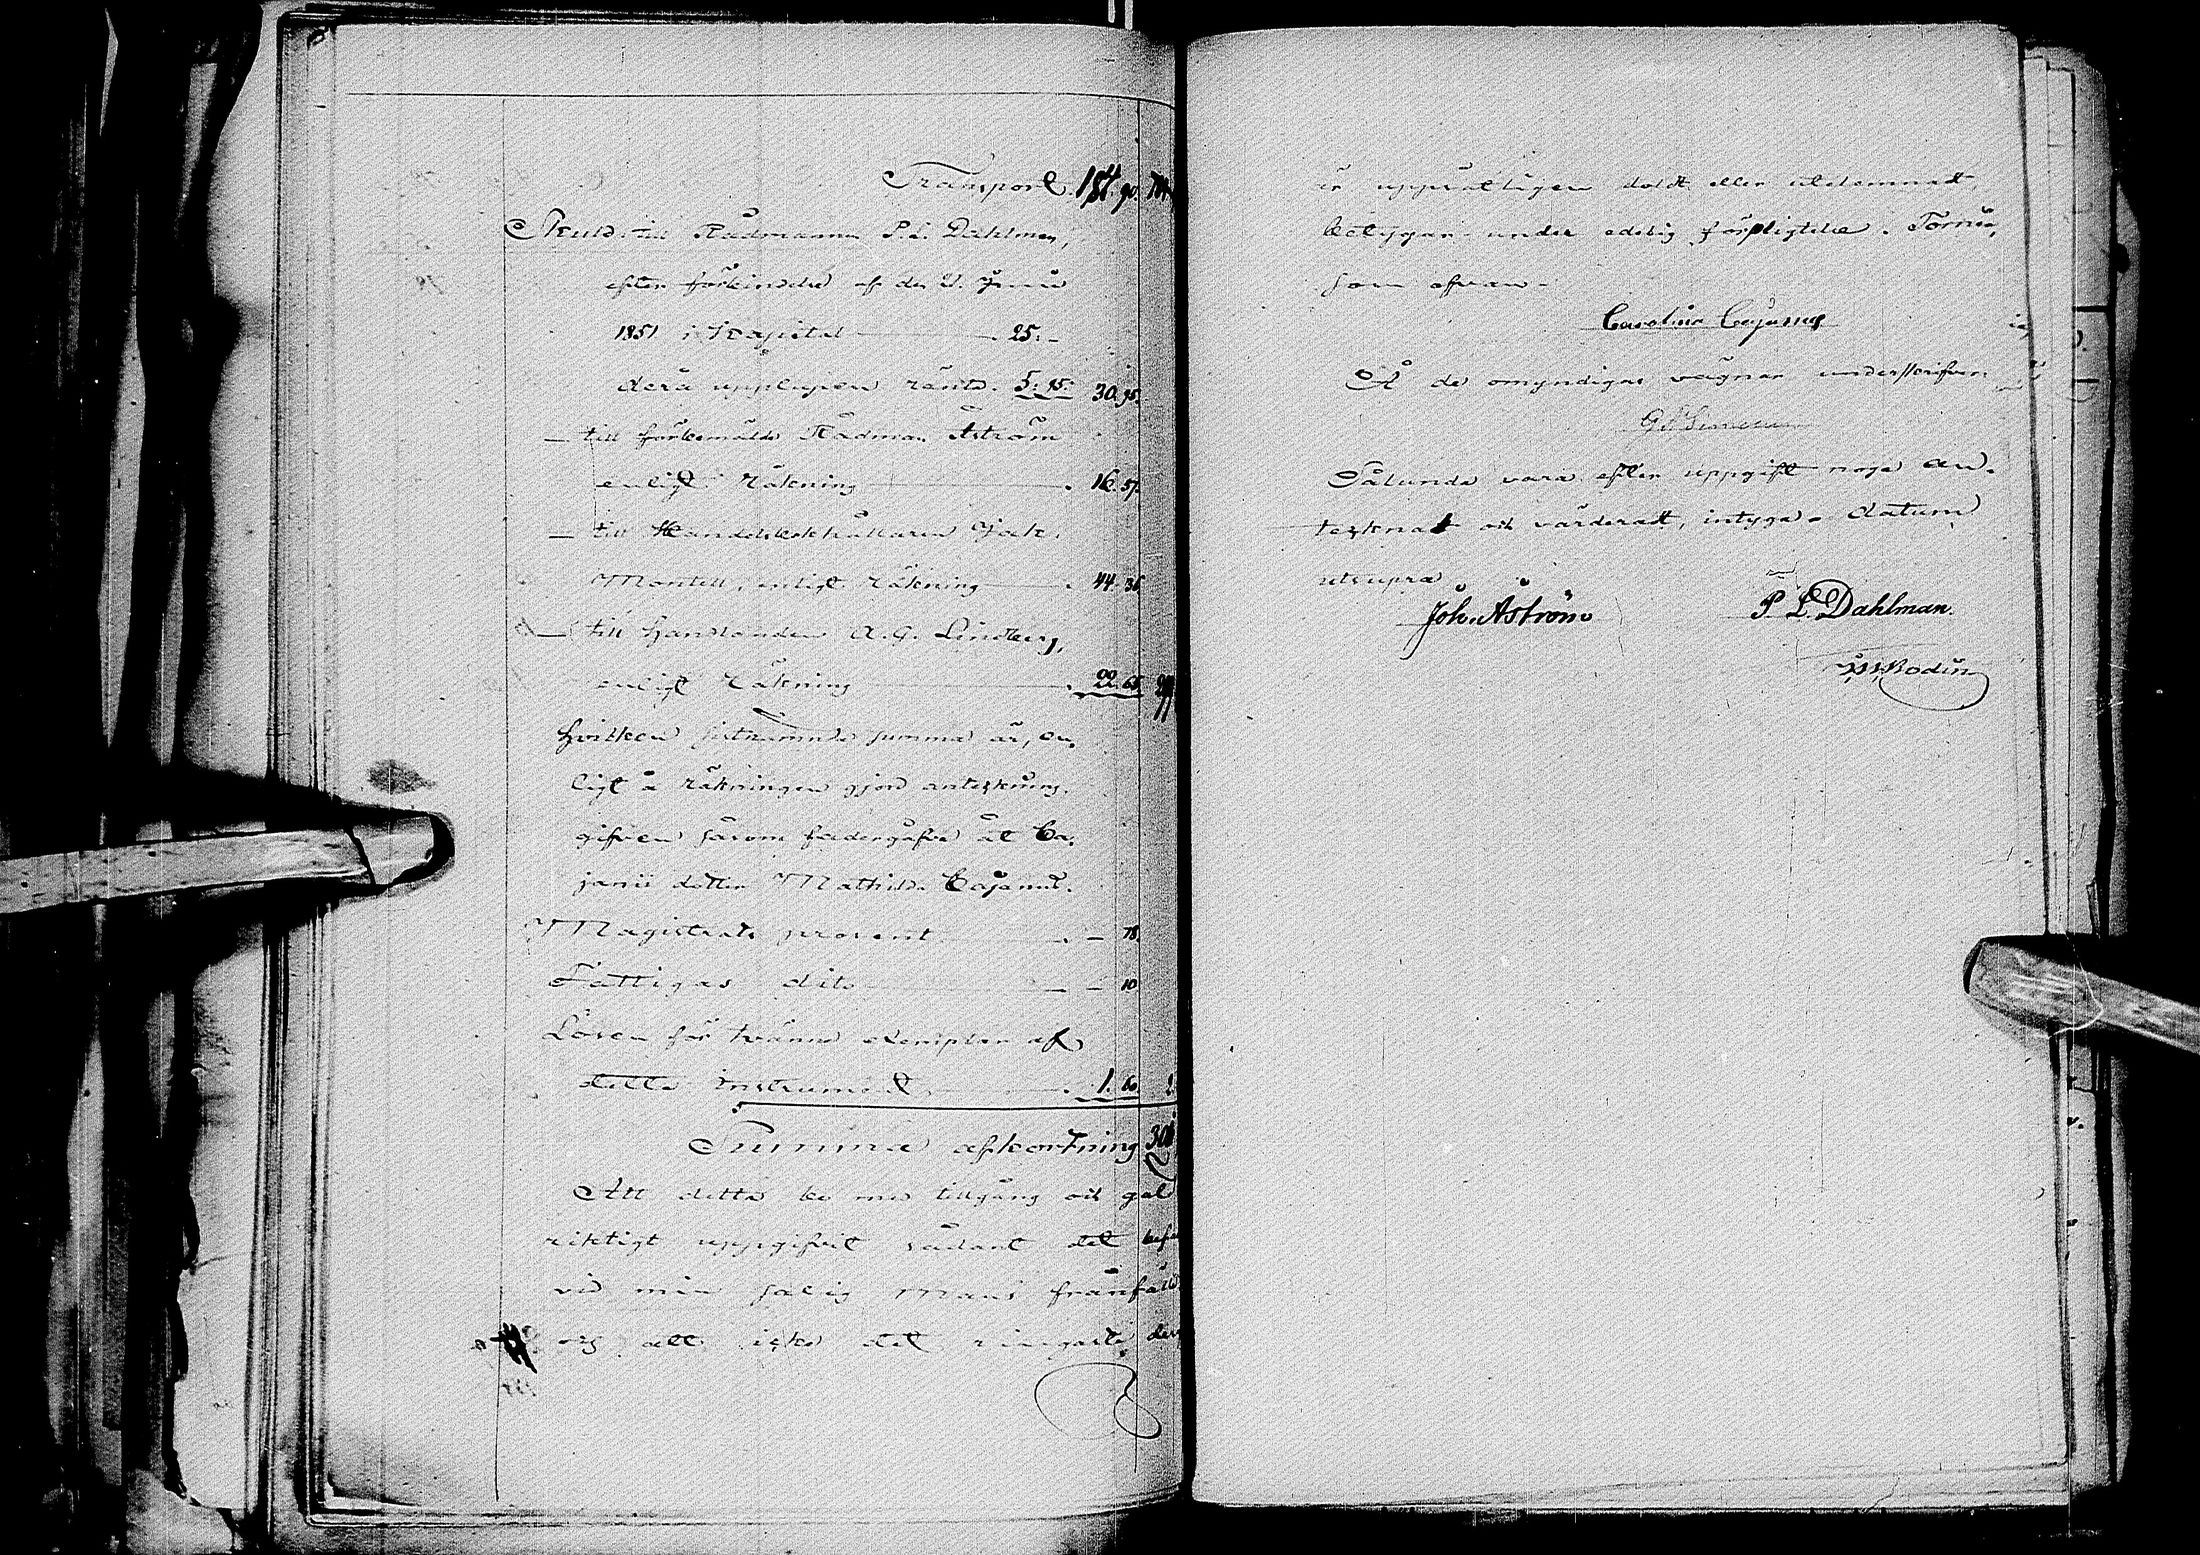 Transport. 184. 90.
Skuld till Rådmannen P. L. Dahlman,
efter förbindelse af den 2. Junii
1851 i Kapital 25. –
derå upplupen ränta. 5. 95. 30. 95.
– till förbemälde Rådman Åström
enligt räkning 16. 57.
– till Handelsbokhållaren Jack.
Montell, enligt räkning 44. 36
– till Handlanden A. G. Lindberg,
enligt räkning 22. 65
hvilken sistnämnda summa är, en-
ligt å räkningen gjord anteckning,
gifven såsom faddergåfva åt Ca-
janii dotter Mathilda Cajanus.
Magistrats procent – 78.
Fattigas dito – 10
Lösen för tvänne exemplar af
detta instrument 1. 60. 2
Summa afkortning
Att detta bo med tillgång och gäld
riktigt uppgifvit sådant det
vid min salig Mans frånfälle
och att icke det ringaste
är uppsåtligen doldt eller utelemnadt,
betygar under edelig förpligtelse. Torneå,
som ofvan –
Carolina Cajanus
På de omyndigas vägnar
Sålunda vara efter uppgift noga an-
tecknat och värderadt, intyga – datum
utsupra
Joh. Åström P. L. Dahlman.
Bodin